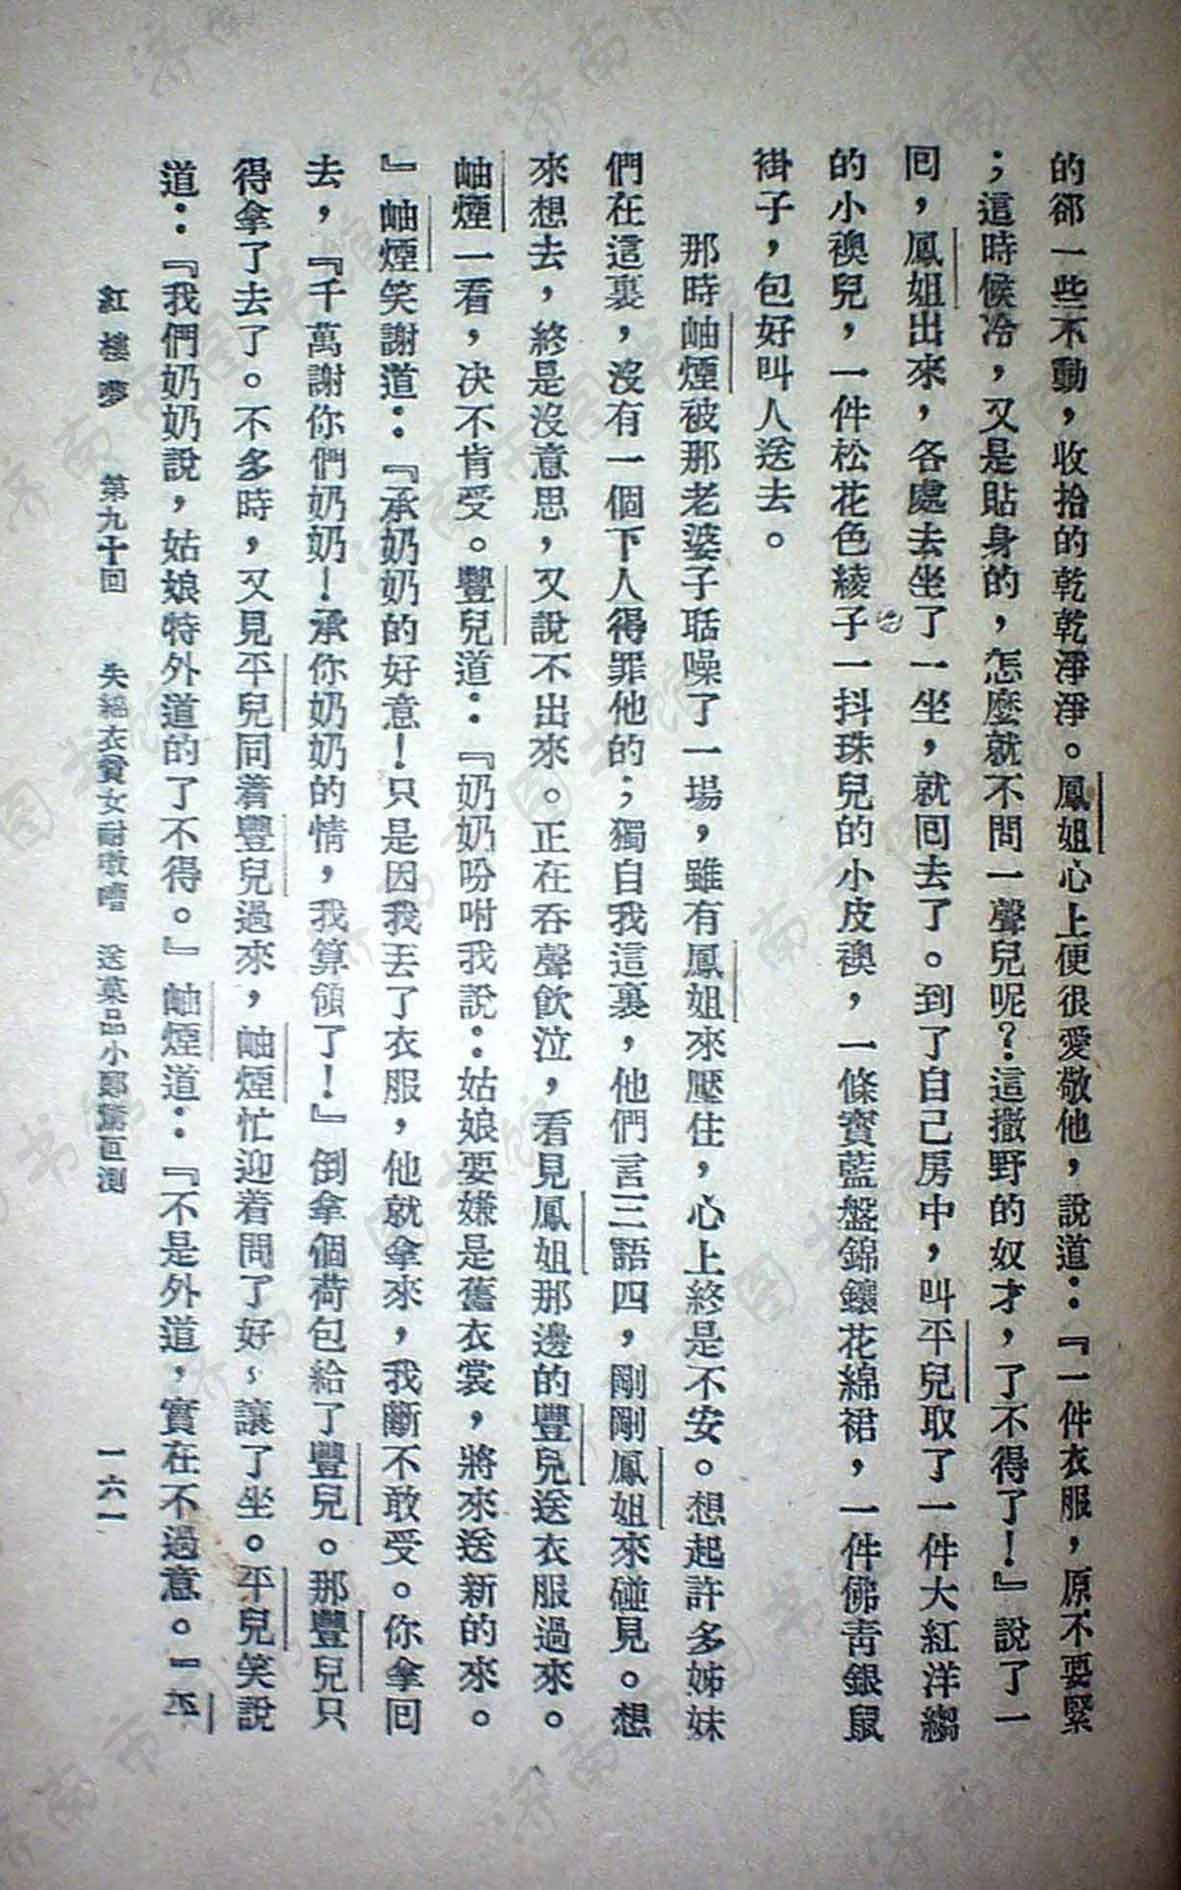 的卻一些不動，收拾的乾乾淨淨。鳳姐心上便很愛敬他，說道：『一件衣服，原不要緊
；這時候冷，又是貼身的，怎麼就不問一聲兒呢？這撒野的奴才，了不得了！』說了一
回，鳳姐出來，各處去坐了一坐，就回去了。到了自己房中，叫平兒取了一件大紅洋縐
的小襖兒，一件松花色綾子一抖珠兒的小皮襖，一條寶藍盤錦鑲花綿裙，一件佛青銀鼠
褂子，包好叫人送去。
那時岫煙被那老婆子聒噪了一場，雖有鳳姐來壓住，心上終是不安。想起許多姊妹
們在這裏，沒有一個下人得罪他的；獨自我這裏，他們言三語四，剛剛鳳姐來碰見。想
來想去，終是沒意思，又說不出來。正在吞聲飲泣，看見鳳姐那邊的豐兒送衣服過來。
岫煙一看，決不肯受。豐兒道：『奶奶吩咐我說：姑娘要嫌是舊衣裳，將來送新的來。
』岫煙笑謝道：『承奶奶的好意！只是因我丟了衣服，他就拿來，我斷不敢受。你拿回
去，『千萬謝你們奶奶！承你奶奶的情，我算領了！』倒拿個荷包給了豐兒。那豐兒只
得拿了去了。不多時，又見平兒同着豐兒過來，岫煙忙迎着問了好，讓了坐。平兒笑說
道：『我們奶奶說，姑娘特外道的了不得。』岫煙道：『不是外道，實在不過意。』平
紅樓夢 第九十回 失綿衣貧女耐嗷嘈 送菓品小郎驚叵測 一六一
济南市图书馆